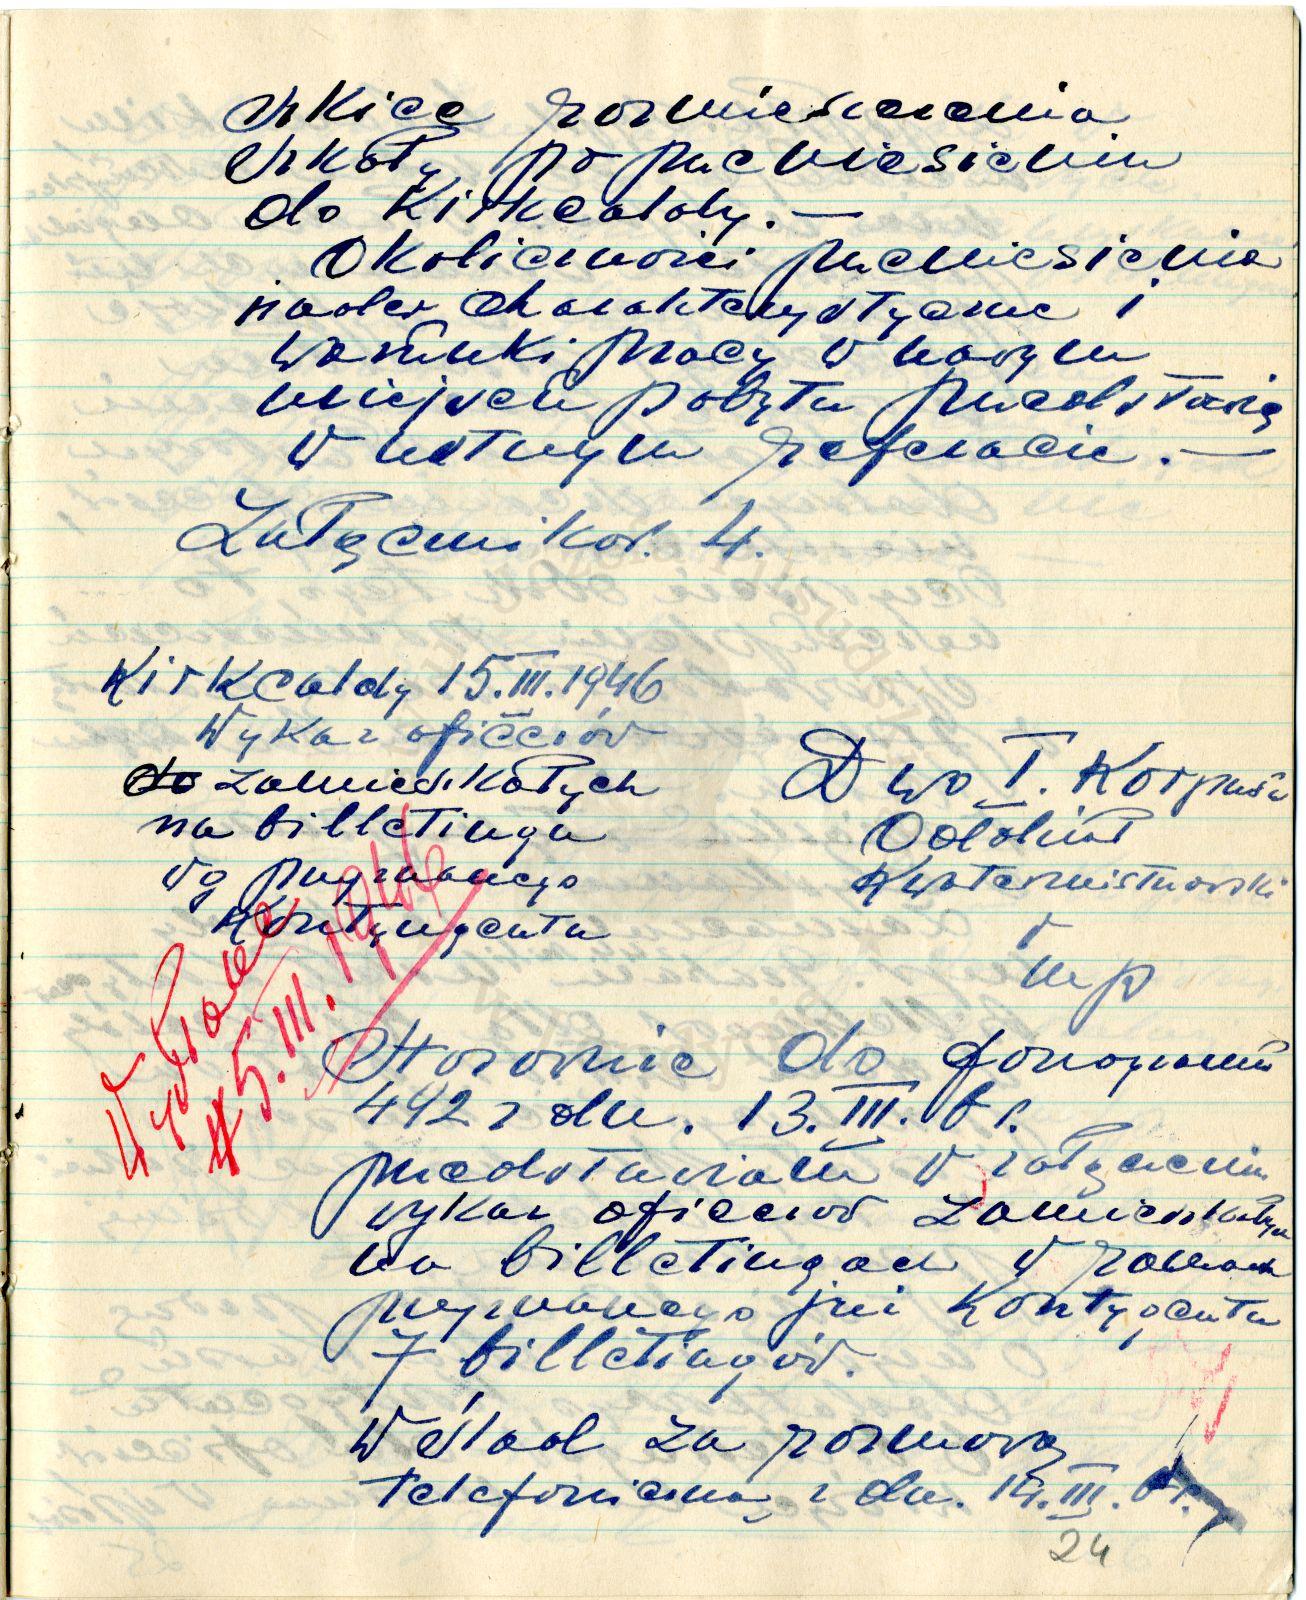 szkice rozmieszczenia
szkoły po przeniesieniu
do Kirkcaldy. —
Okoliczności przeniesienia
nader charakterystyczne i
warunki pracy w naszym
miejscu pobytu przedstawię
w ustnym referacie. —
Załączników. 4.
Kirkcaldy 15.III.1946
Wykaz oficerów
do zamieszkałych
na billetingu
wg przyznanego
Kontyngentu
Dwo I. Korpusu
Oddział
Kwatermistrzowski
w
mp
Wysłane
15.III.1946
Stosownie do fonogramu
442 z dn. 13.III. br.
przedstawiam w załączeniu
wykaz oficerów zamieszkałych
na billetingach w ramach
przyznanego jej kontygentu
7 billetingów.
W ślad za rozmową
telefoniczną z dn. 14.III. br.
24